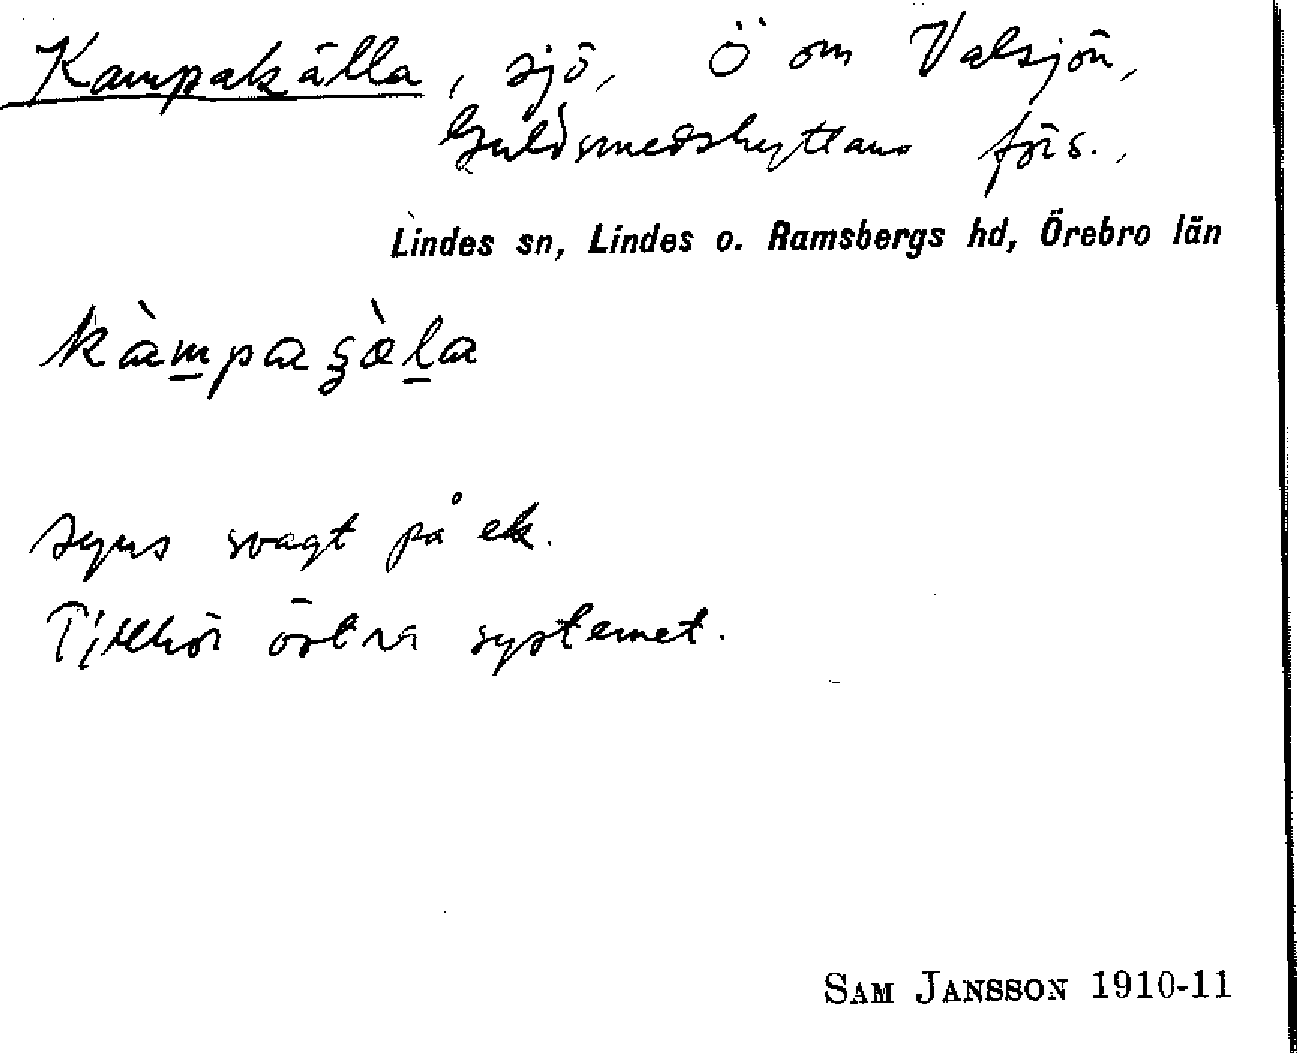 Kampakälla, sjö, Ö om Valsjön,
Guldsmedshyttans förs.,
Lindes sn, Lindes o. Ramsbergs hd, Örebro län
kàm̲paʂæ̀l̲a
syns svagt på ek.
Tillhör östra systemet.
SAM JANSSON 1910-11